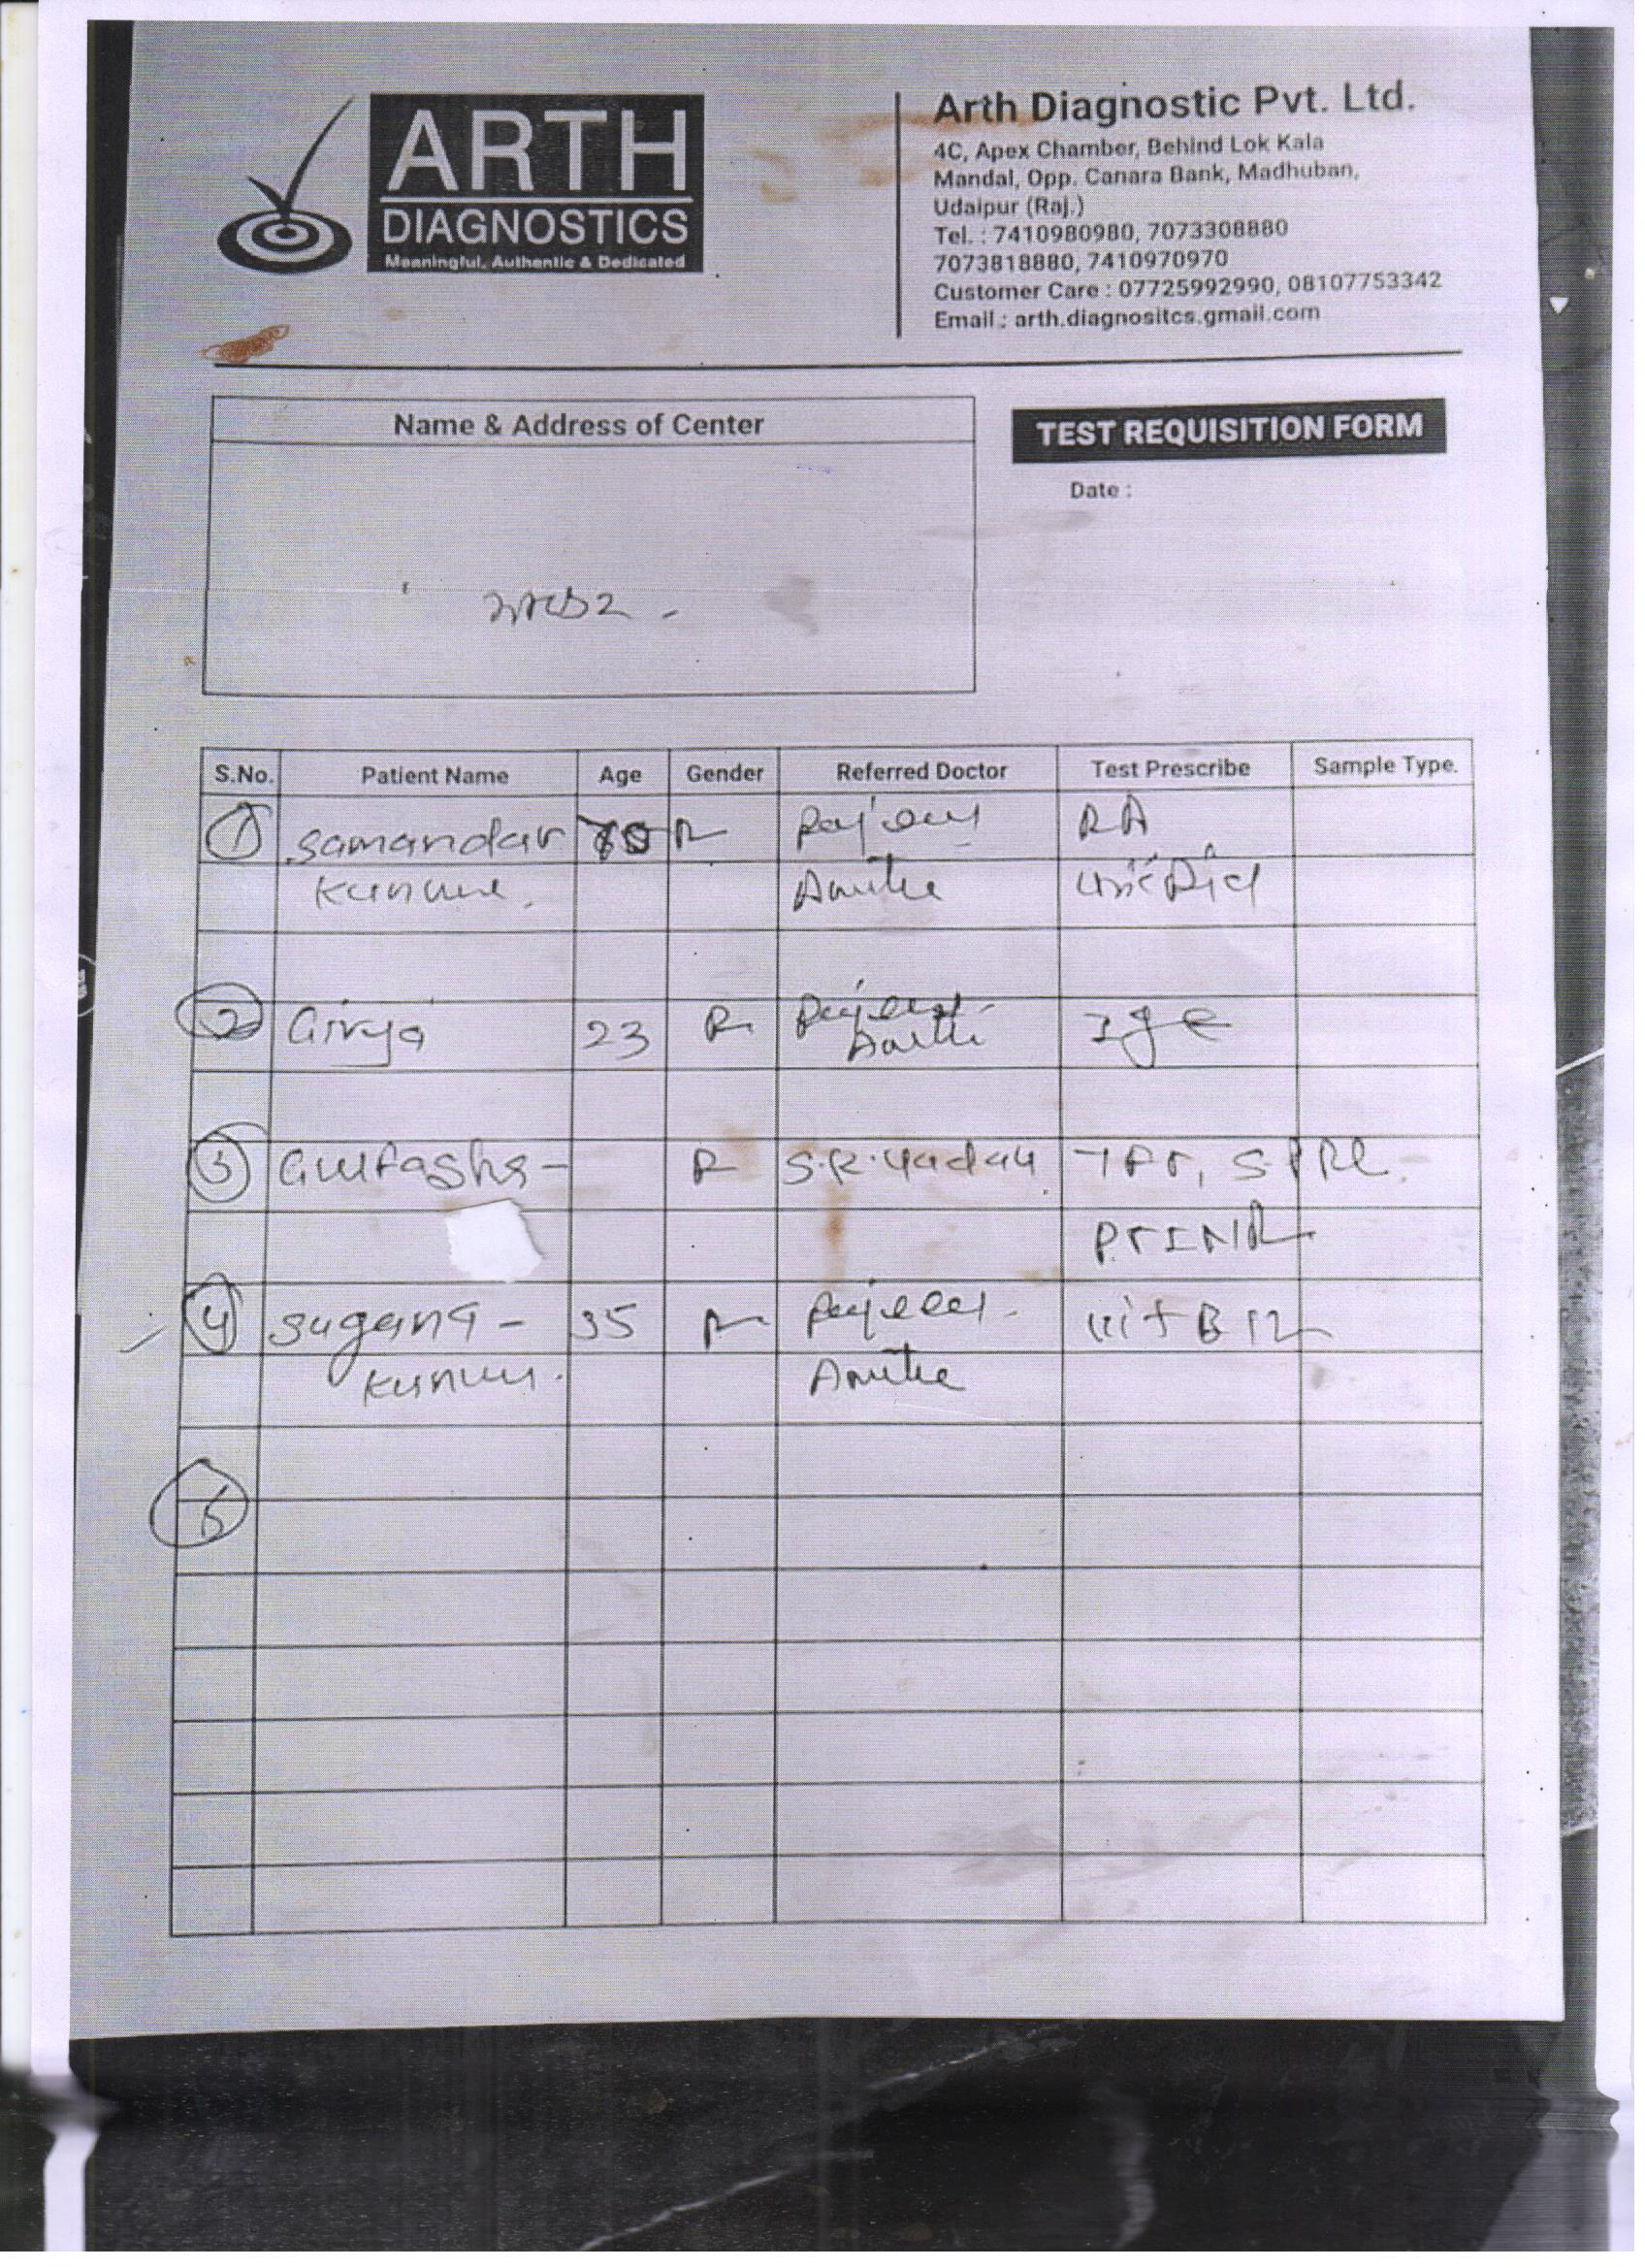 ARTH
DIAGNOSTICS
Meaningful, Authentic & Dedicated
Arth Diagnostic Pvt. Ltd.
4C, Apex Chamber, Behind Lok Kala
Mandal, Opp. Canara Bank, Madhuban,
Udaipur (Raj.)
Tel. : 7410980980, 7073308880
7073818880, 7410970970
Customer Care : 07725992990, 08107753342
Email : arth.diagnositcs.gmail.com
Name & Address of Center
TEST REQUISITION FORM
Date :
S.No. Patient Name Age Gender Referred Doctor Test Prescribe Sample Type.
1 Samandar RA
2 Girja 23 Ige
3 Gulfasha - S.R. Yadav
PTINR
4 Sugana - 35 Vit B12
5